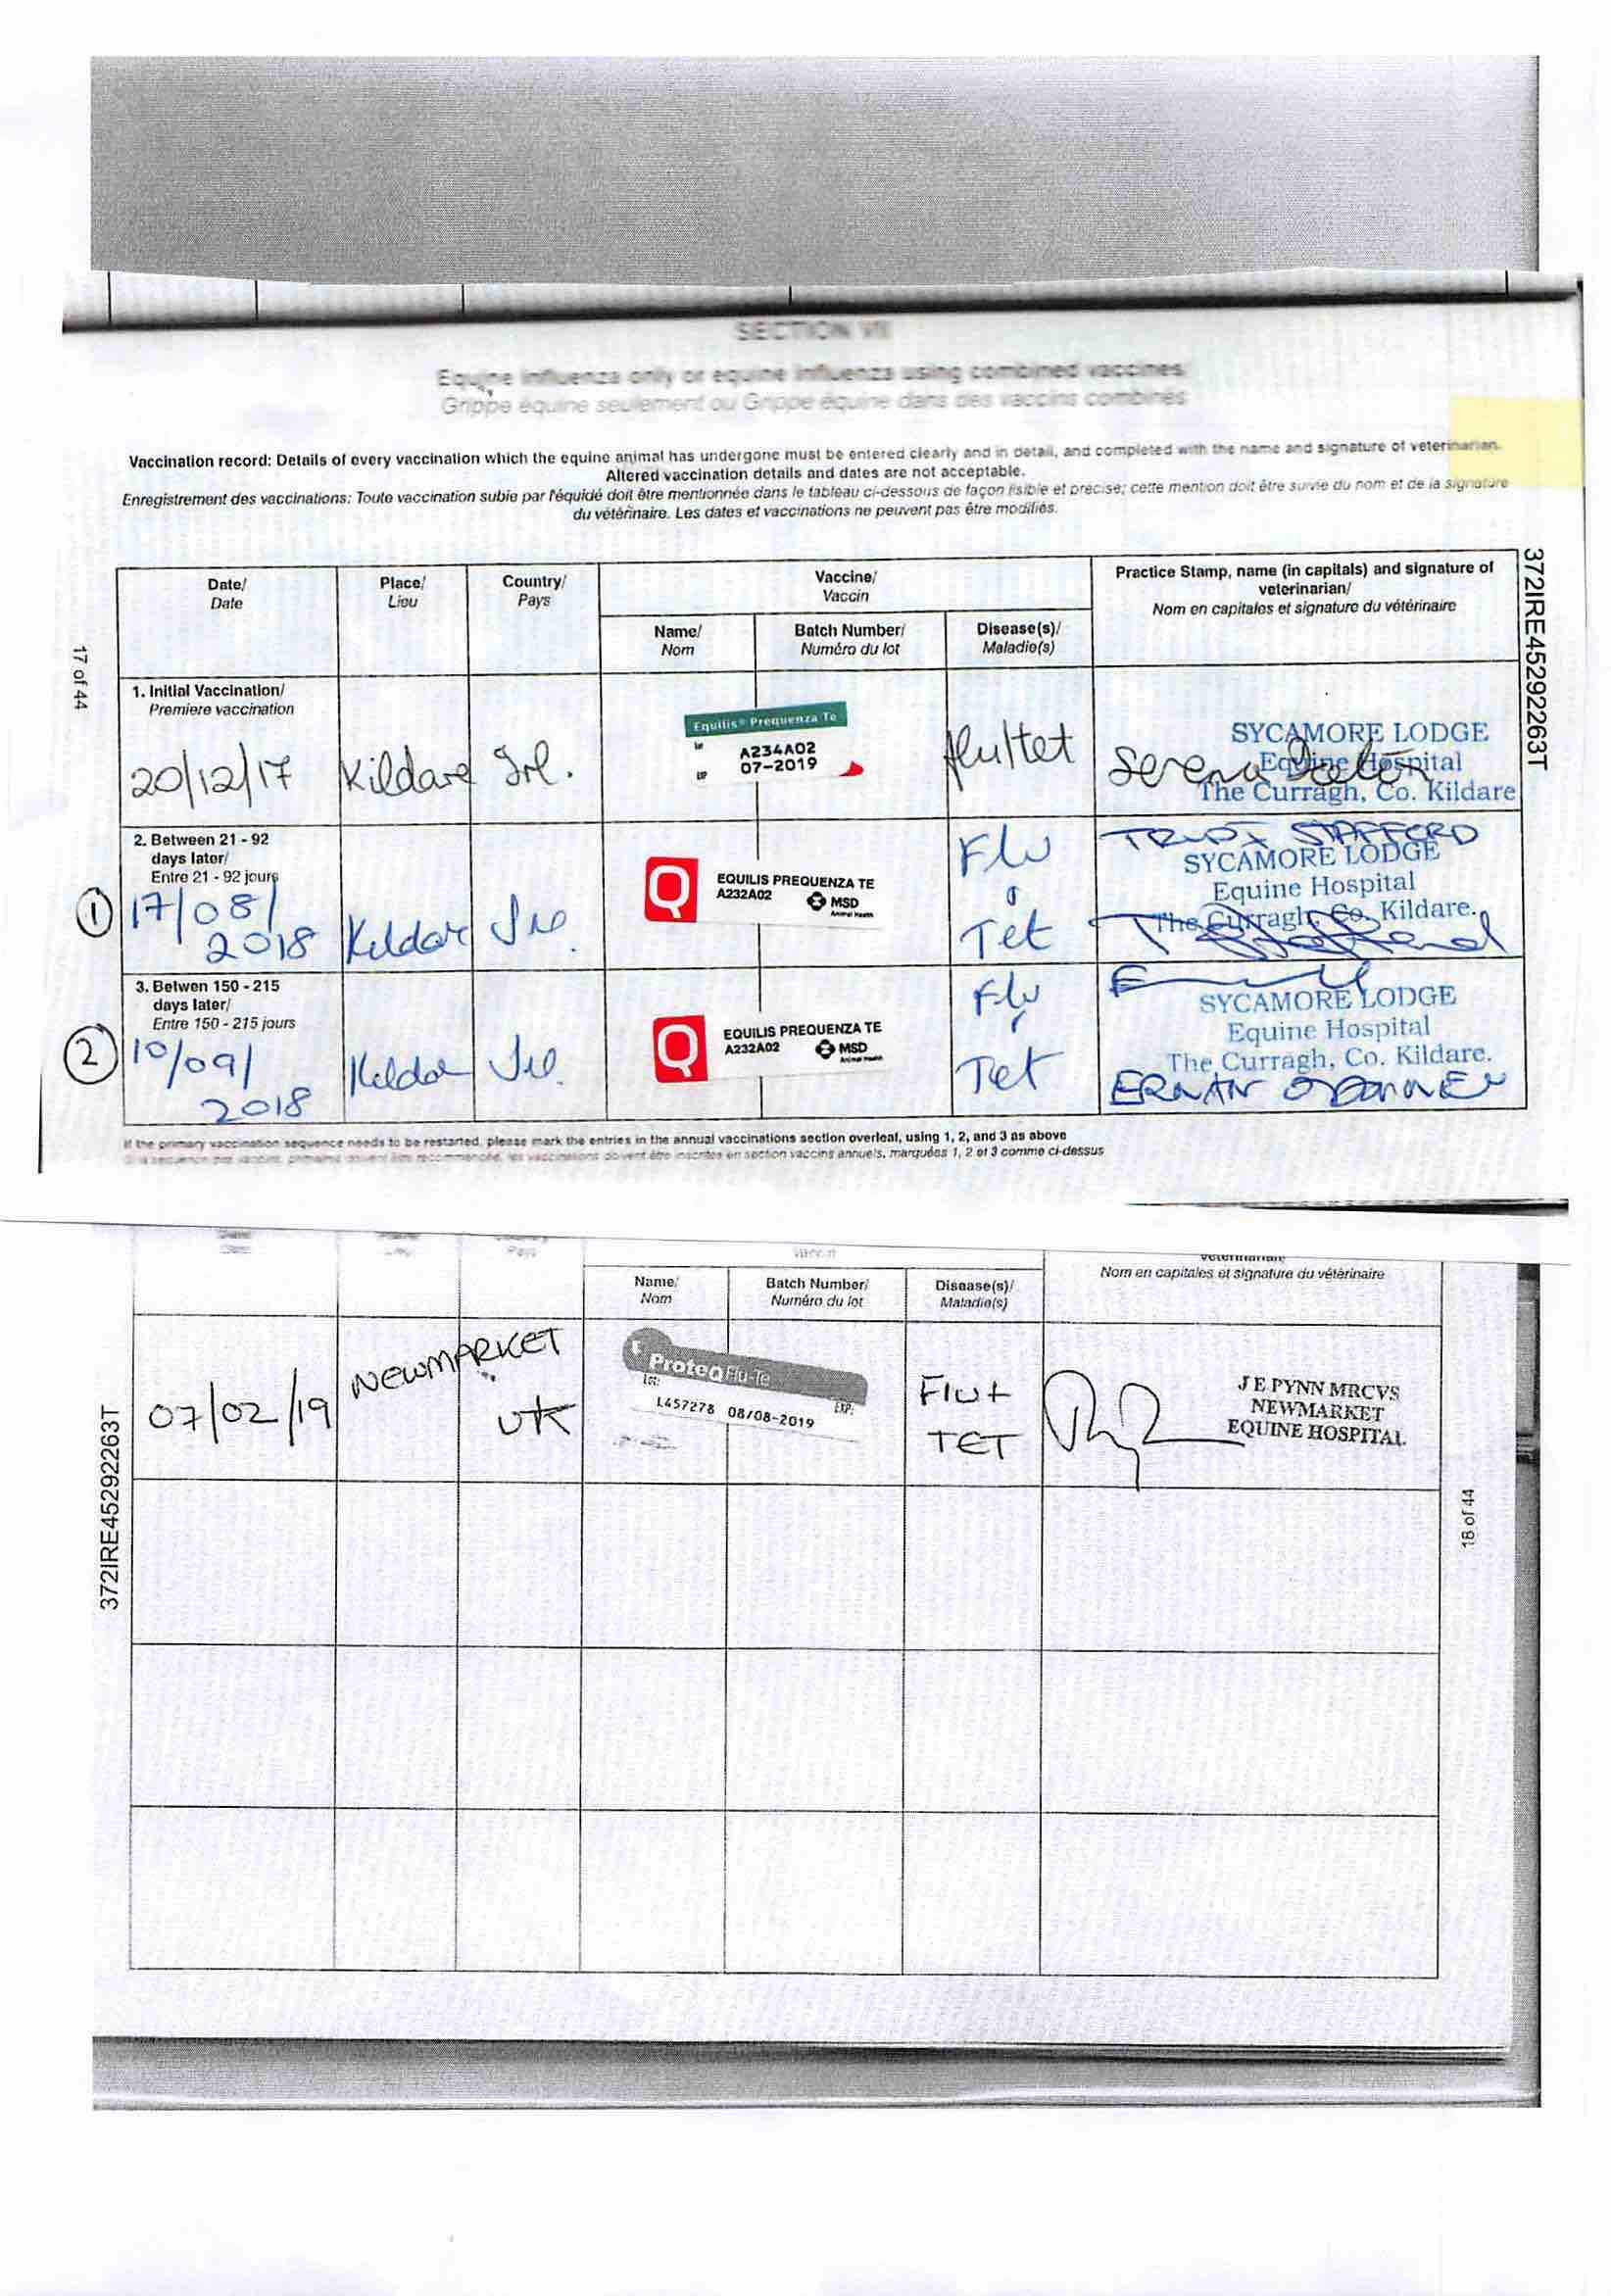 SECTION VII
Equine influenza only or equine influenza using combined vaccines
Grippe équine seulement ou Grippe équine dans des vaccins combinés
Vaccination record: Details of every vaccination which the equine animal has undergone must be entered clearly and in detail, and completed with the name and signature of veterinarian.
Altered vaccination details and dates are not acceptable.
Enregistrement des vaccinations: Toute vaccination subie par l'équidé doit être mentionnée dans le tableau ci-dessous de façon lisible et precise; cette mention doit être suivie du nom et de la signature
du vétérinaire. Les dates et vaccinations ne peuvent pas être modifiés.
372IRE452922263T
17 of 44
Date/
Date
Place/
Lieu
Country/
Pays
Vaccine/
Vaccin
Practice Stamp, name (in capitals) and signature of
veterinarian/
Nom en capitales et signature du vétérinaire
Name/
Nom
Batch Number/
Numéro du lot
Disease(s)/
Maladie(s)
1. Initial Vaccination/
Premiere vaccination
20/12/17
Kildare
Irl.
Equilis® Prequenza Te
A234A02
EXP 07-2019
flu/tet
Serena
SYCAMORE LODGE
Equine Hospital
The Curragh, Co. Kildare
2. Between 21 - 92
days later/
Entre 21 - 92 jours
1 17/08/
2018
Kildar
Q
EQUILIS PREQUENZA TE
A232A02
MSD
Animal Health
Flu
Tet
STAFFORD
SYCAMORE LODGE
Equine Hospital
The Curragh, Co. Kildare.
3. Betwen 150 - 215
days later/
Entre 150 - 215 jours
2 10/09/
2018
Q
EQUILIS PREQUENZA TE
A232A02
MSD
Animal Health
Flu
Tet
SYCAMORE LODGE
Equine Hospital
The Curragh, Co. Kildare.
ERNAN O DONNELL
If the primary vaccination sequence needs to be restarted, please mark the entries in the annual vaccinations section overleaf, using 1, 2, and 3 as above
les vaccinations doivent être inscrites en section vaccins annuels, marquées 1, 2 et 3 comme ci-dessus
Pays
Vaccin
veterinarian/
Nom en capitales et signature du vétérinaire
Name/
Nom
Batch Number/
Numéro du lot
Disease(s)/
Maladie(s)
07/02/19
NEWMARKET
UK
ProteqFlu-Te
Lot: EXP:
L457278 08/08-2019
Flu +
TET
J E PYNN MRCVS
NEWMARKET
EQUINE HOSPITAL
372IRE452922263T
18 of 44